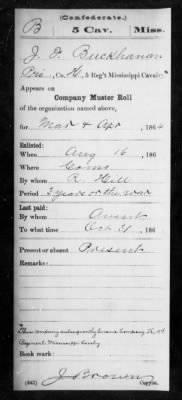 (Confederate.)
B 5 Cav. Miss.
J. F. Buckhanan
Pvt., Co. H., 5 Reg't Mississippi Cavalry.
Appears on
Company Muster Roll
of the organization named above,
for Mar & Apr, 1864
Enlisted:
When Aug 16, 186
Where Coms
By whom R. Hill
Period 3 years or the war
Last paid:
By whom Avent
To what time Oct 31, 186
Present or absent Present
Remarks:
*This company subsequently became Company
Regiment Mississippi Cavalry
Book mark:
J. Brown
(642) Copyist.